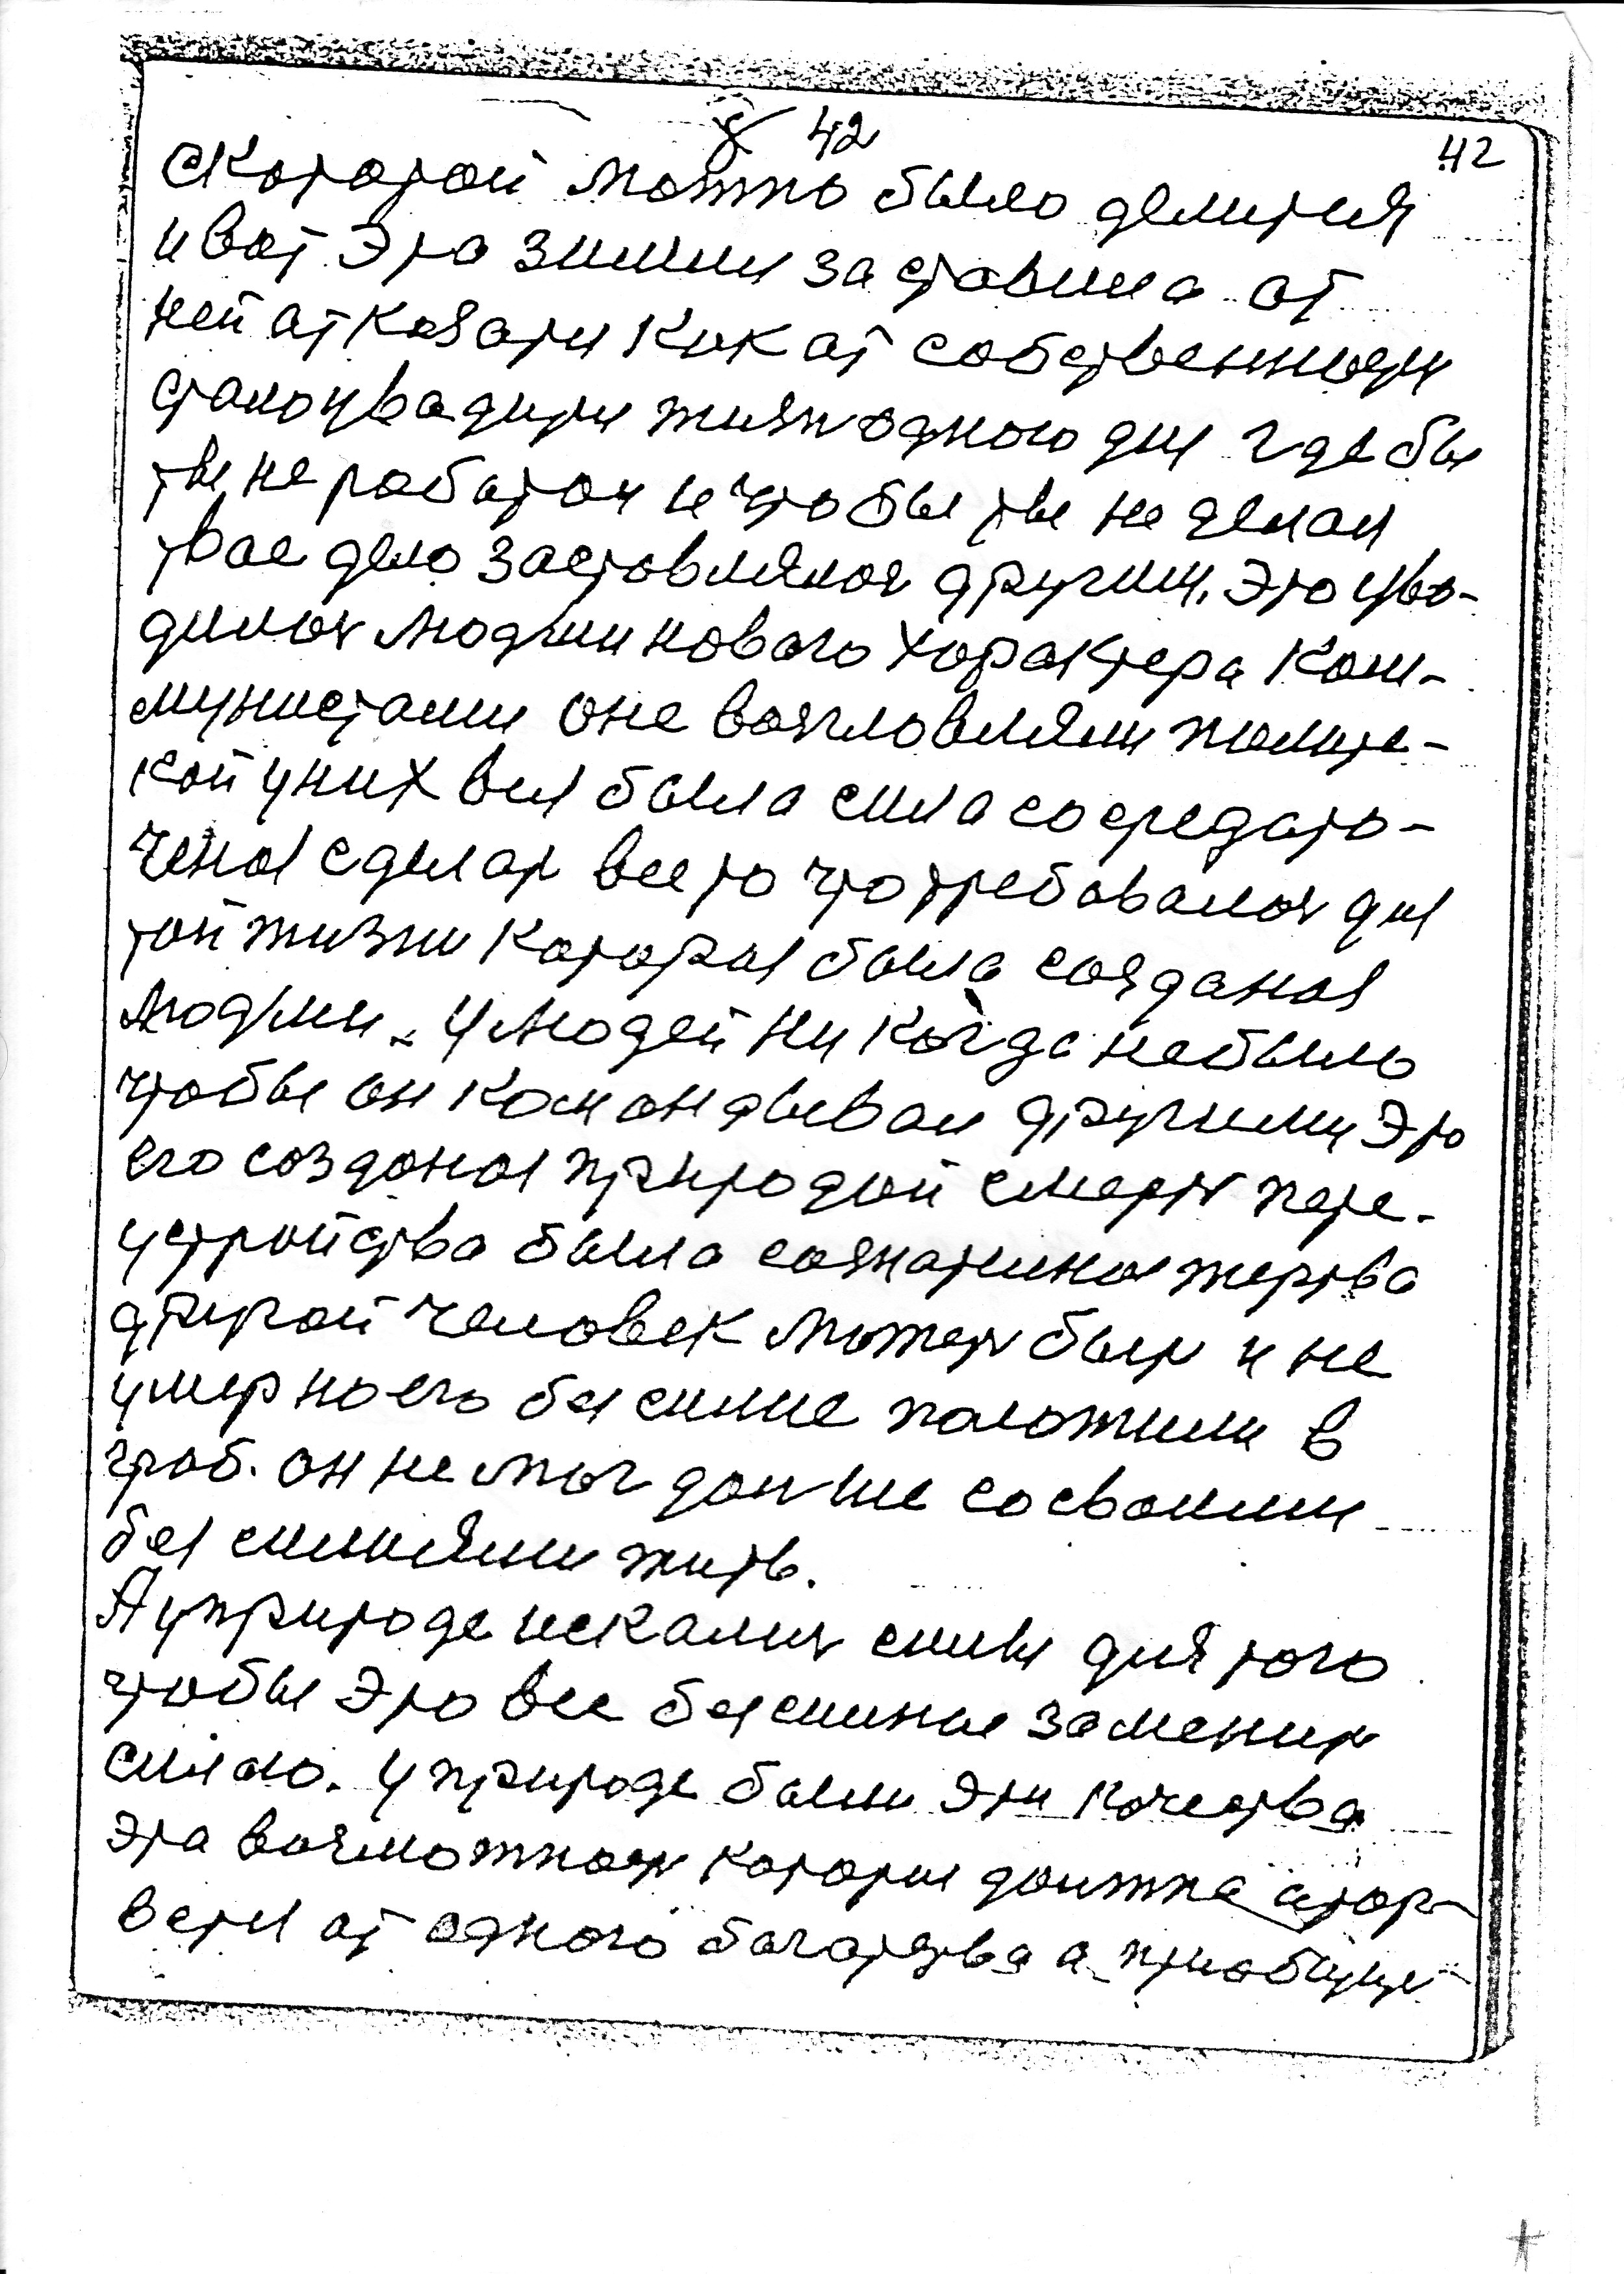 42
42
скоторой можно было делится
и вот эта зимли заставила от
ней отказати как от собственности
стало увадити жизн одного дня где бы
ты не работал и что бы ты не делал
твое дело заставлялоя другим, это уво-
дилоя людми нового характера ком-
мунистами оне возгловляли полите-
кой у них вся была сила сосредато-
ченоя сделат все то что требавалоя для
той жизни которая была созданоя
людми. у людей ни когда небыло
чтобы он командывал другими это
его созданоя природой смерт пере-
устройства была сознателноя жертва
другой человек может быт и не
умер но его безсилие положили в
гроб. он не мог долше со своими
безсилиями жить.
А у природе искалис силы для того
чтобы это все безсилие заменит
силою. у природе были эти качества
эта возможност которая должна атор-
ватя от одного богатства а приобще